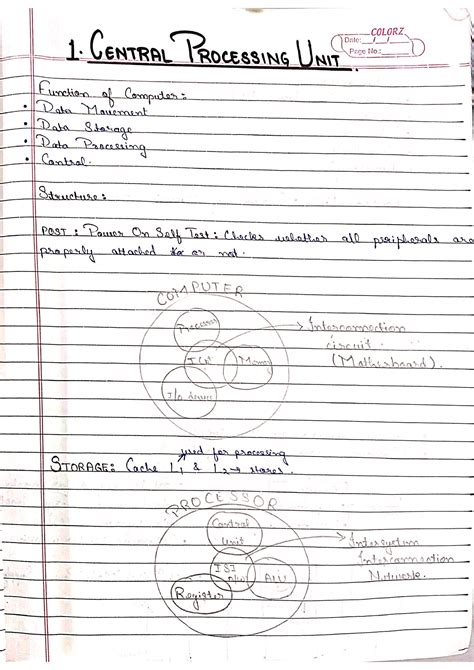 COLORZ
Date:
Page No.:
1. CENTRAL PROCESSING UNIT
Function of Computer:
• Data Movement
• Data Storage
• Data Processing
• Control.
Structure:
POST: Power On Self Test: Checks whether all peripherals are
properly attached or not.
COMPUTER
Processor
Interconnection
circuit
(Motherboard).
Memory
I/o
used for processing
STORAGE: Cache L1 & L2 → stores.
PROCESSOR
Control
Unit
Intersystem
Interconnection
Network.
ISI
ALU
Register